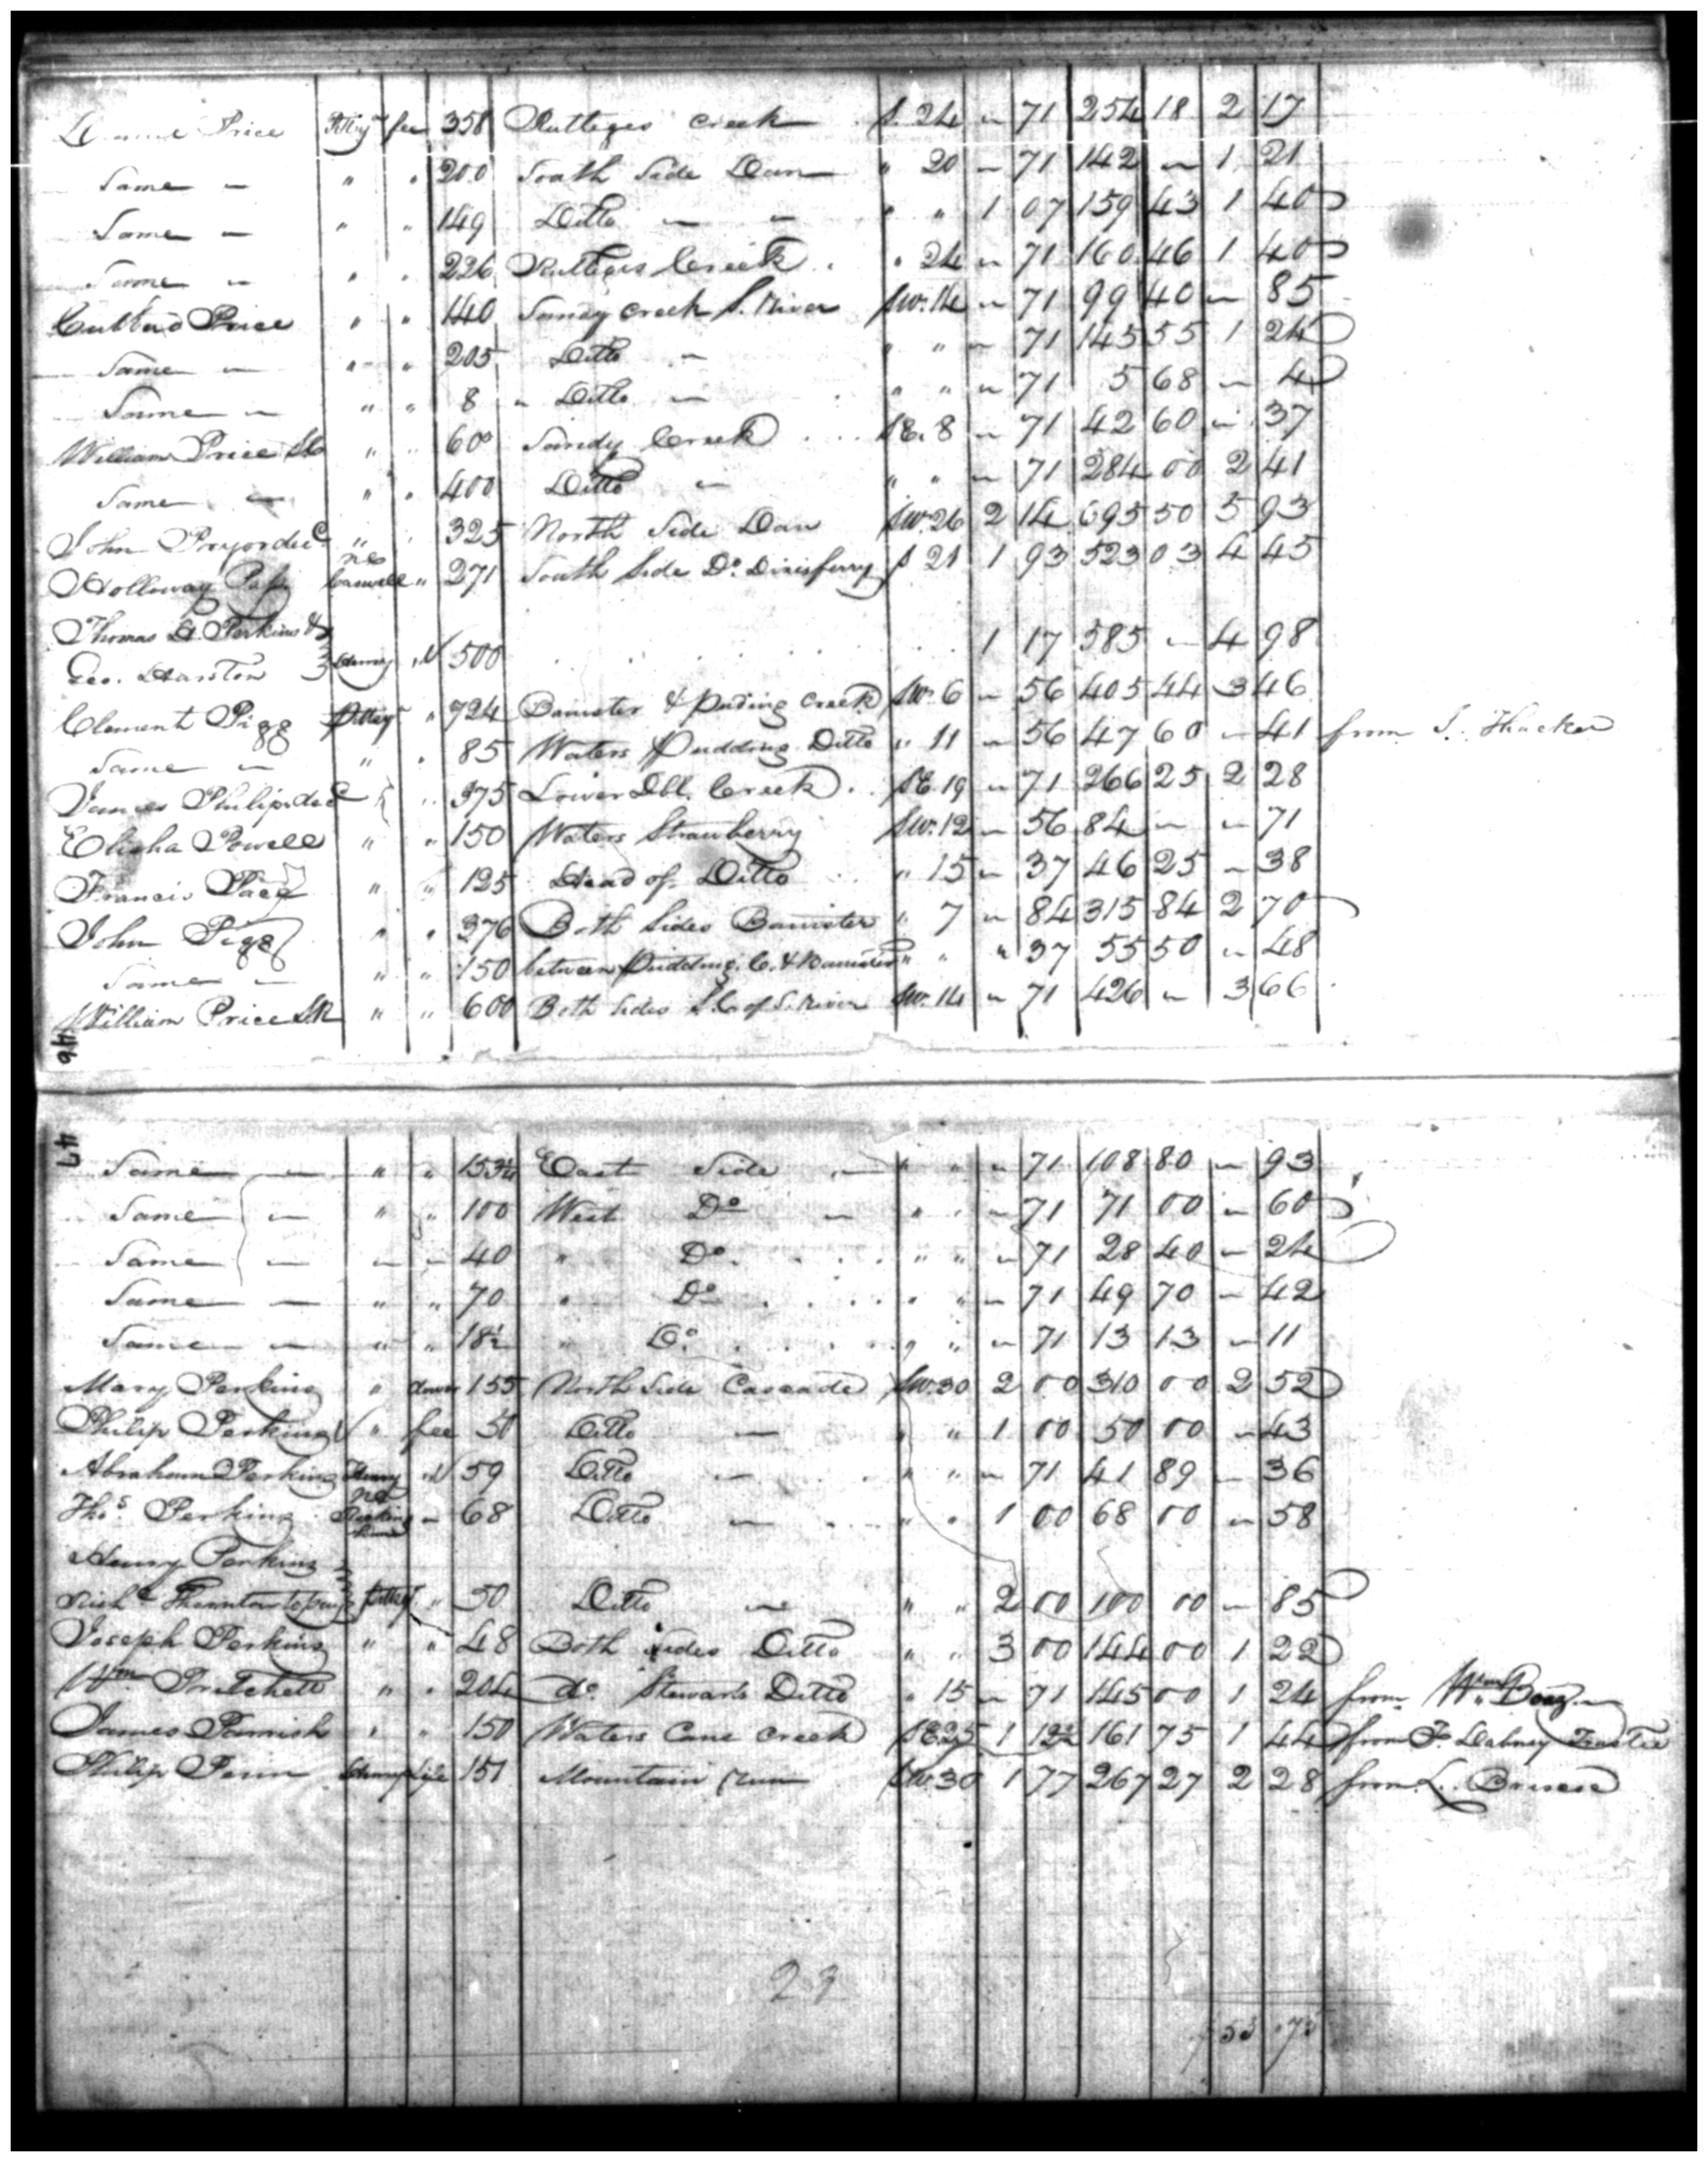 Price Pittsy fee 358 Rutleges Creek S. 24 " 71 254 18 2 17
Same " " 200 South Side Dan " 20 " 71 142 " 1 21
Same " " 149 Ditto " " 1 07 159 43 1 40
Same " " 226 Rutleges Creek " 24 " 71 160 46 1 40
Cutberd Price " " 140 Sandy Creek S. River SW. 14 " 71 99 40 " 85
Same " " 205 Ditto " " " 71 145 55 1 24
Same " " 8 " Ditto " " " 71 5 68 " 4
William Price " " 60 Sandy Creek SE. 8 " 71 42 60 " 37
Same " " 400 Ditto " " " 71 284 00 2 41
John Pryor decd " " 325 North Side Dan SW. 26 2 14 695 50 5 93
Holloway Pass no Caswell " 271 South Side Do. Dixisferry S 21 1 93 523 03 4 45
Thomas H. Perkins &
Geo. Hairston Henry " 500 1 17 585 " 4 98
Clement Pigg Pittsy " 724 Banister & Puding Creek SW. 6 " 56 405 44 3 46
Same " " 85 Waters Pudding Ditto " 11 " 56 47 60 " 41 from J. Thacker
James Philips decd " 375 Lower Dbl. Creek SE. 19 " 71 266 25 2 28
Elisha Powell " " 150 Waters Strawberry SW. 12 " 56 84 " " 71
Francis Pace " " 125 Head of Ditto " 15 " 37 46 25 " 38
John Pigg " " 376 Both Sides Banister " 7 " 84 315 84 2 70
Same " " 150 between Pudding C. & Banister " " " 37 55 50 " 48
William Price SR " " 600 Both Sides S. C. of S. River SW. 14 " 71 426 " 3 66
46
47
Same " " 153¼ East Side " " " 71 108 80 " 93
Same " " 100 West Do " " " 71 71 00 " 60
Same " " 40 " Do. " " " 71 28 40 " 24
Same " " 70 " Do " " " 71 49 70 " 42
Same " " 18½ " Do. " " " 71 13 13 " 11
Mary Perkins " dower 155 North Side Cascade SW. 30 2 00 310 00 2 52
Philip Perkins " fee 50 Ditto " " 1 00 50 00 " 43
Abraham Perkins Henry " 59 Ditto " " " 71 41 89 " 36
Thos. Perkins " 68 Ditto " " 1 00 68 00 " 58
Henry Perkins
Pittsy " 50 Ditto " " 2 00 100 00 " 85
Joseph Perkins " " 48 Both Sides Ditto " " 3 00 144 00 1 22
Wm. Pritchett " " 204 do. Stewarts Ditto " 15 " 71 145 00 1 24 from Wm. Boaz
James Parrish " " 150 Waters Cane Creek SE 25 1 12½ 161 75 1 44 from F. Dabney Trustee
Philip Penn Henry life 151 Mountain Run SW. 30 1 77 267 27 2 28 from L.
23
53 73